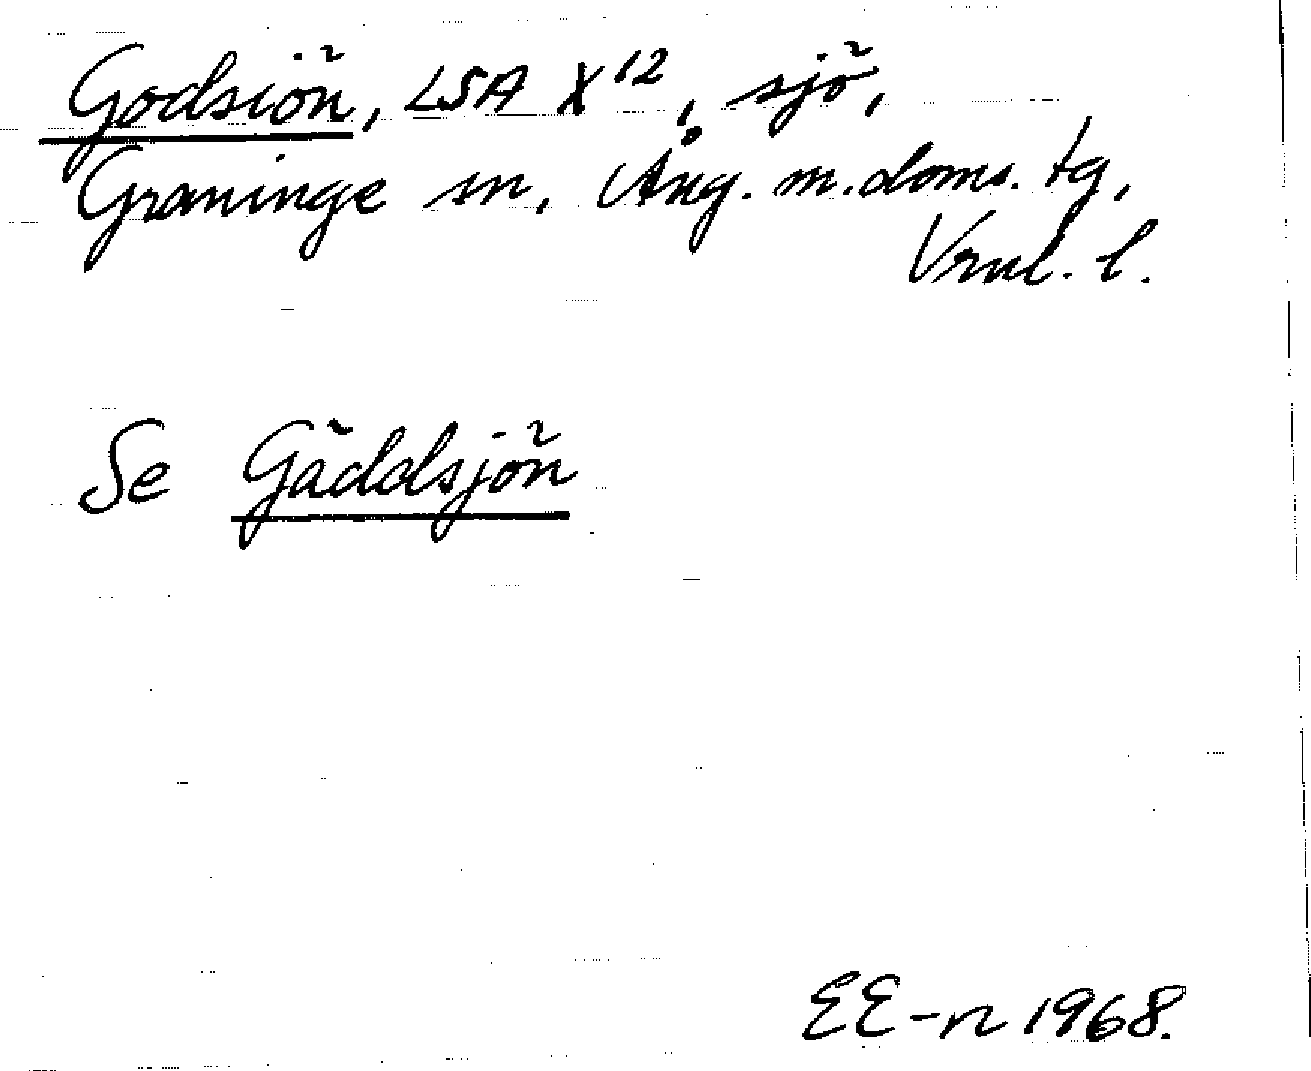 Godsiön, LSA X12, sjö,
Graninge sn, Ång. m. doms. tg,
Vrnl. l.
Se Gäddsjön
EE-n 1968.